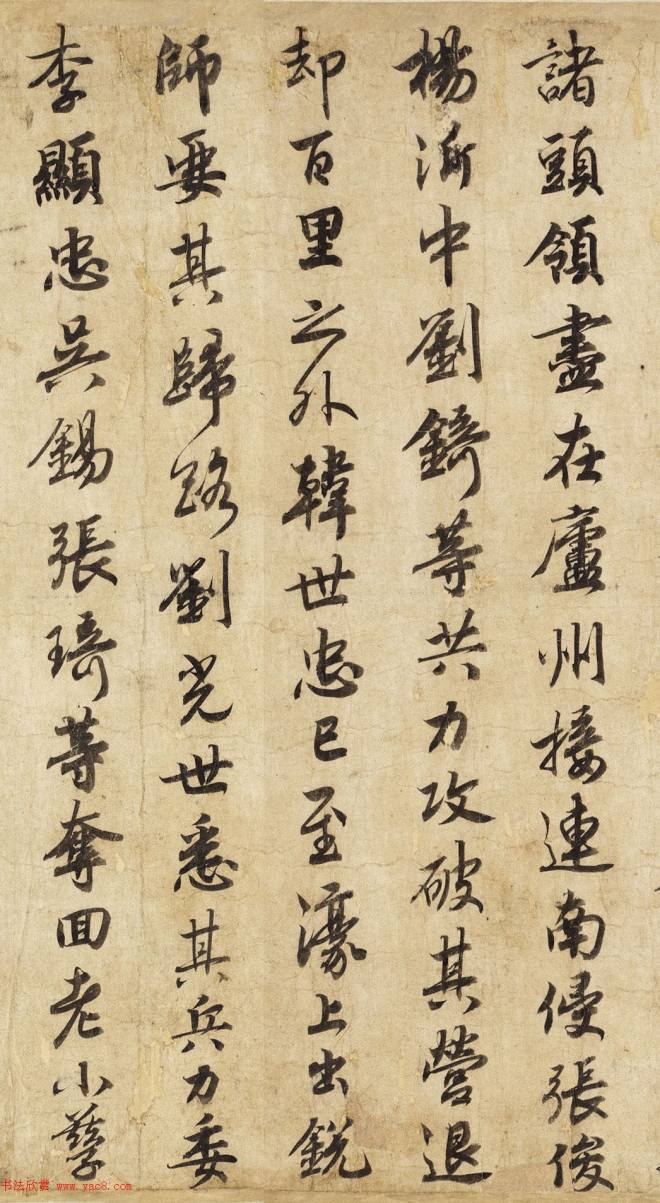 諸頭領盡在廬州接連南侵張俊
楊沂中劉錡等共力攻破其營退
却百里之外韓世忠已至濠上出銳
師要其歸路劉光世悉其兵力委
李顯忠吳錫張琦等奪回老小孳
书法欣赏 www.yac8.com